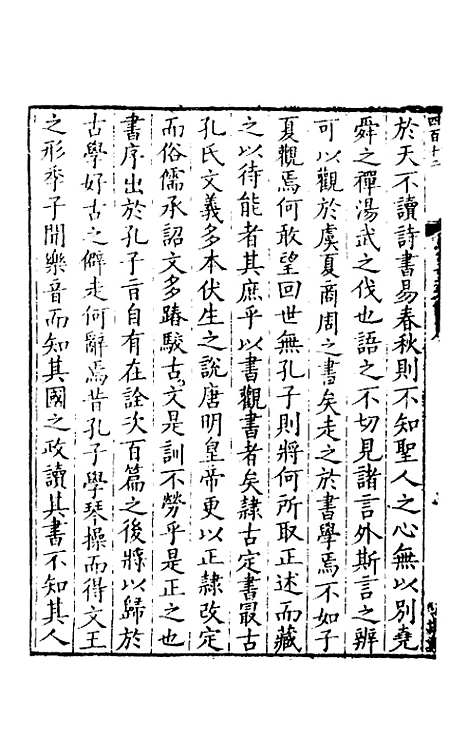 四百十二
於天不讀詩書易春秋則不知聖人之心無以別堯
舜之禪湯武之伐也語之不切見諸言外斯言之辨
可以觀於虞夏商周之書矣走之於書學焉不如子
夏觀焉何敢望回世無孔子則將何所取正述而藏
之以待能者其庶乎以書觀書者矣隸古定書最古
孔氏文義多本伏生之說唐明皇帝更以正隸改定
而俗儒承詔文多踳駮古文是訓不勞乎是正之也
書序出於孔子言自有在詮次百篇之後將以歸於
古學好古之僻走何辭焉昔孔子學琴操而得文王
之形季子聞樂音而知其國之政讀其書不知其人